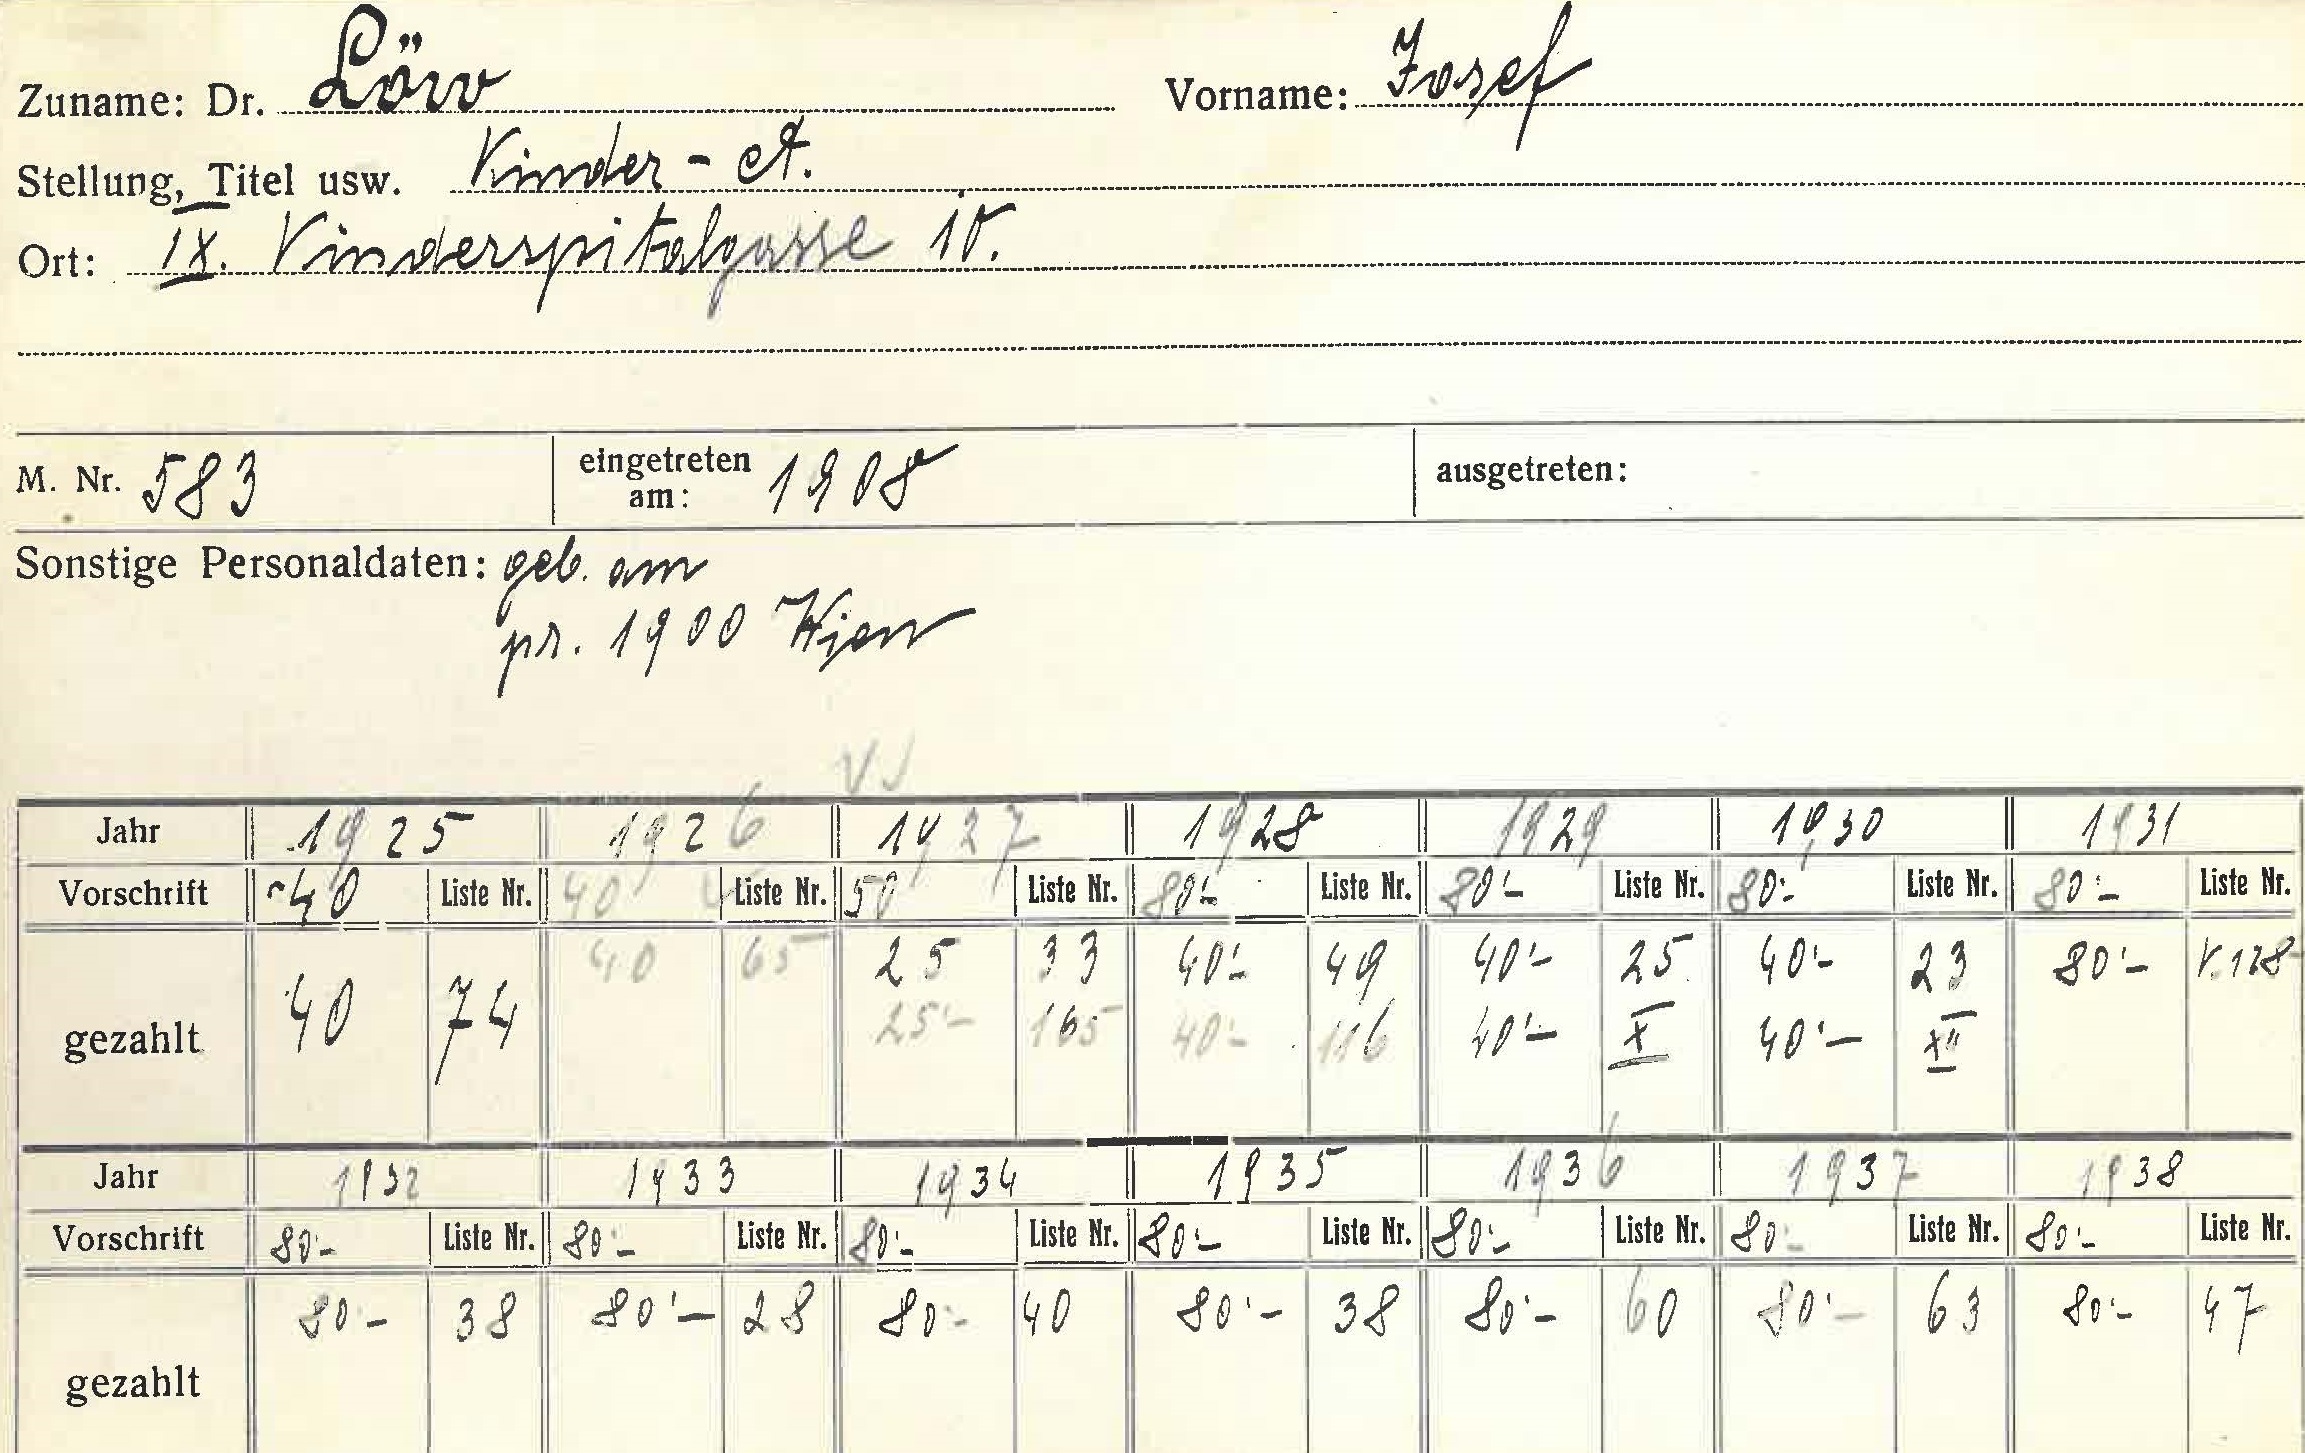 Zuname: Dr. Löw Vorname: Josef
Stellung, Titel usw. Kinder-A.
Ort: IX. Kinderspitalgasse 10.
M. Nr. 583 eingetreten am: 1908 ausgetreten:
Sonstige Personaldaten: geb. am
pr. 1900 Wien
Jahr 1925 1926 1927 1928 1929 1930 1931
Vorschrift 40 Liste Nr. 40 Liste Nr. 50 Liste Nr. 80'- Liste Nr. 80'- Liste Nr. 80'- Liste Nr. 80'- Liste Nr.
gezahlt 40 74 40 65 25 33 40'- 49 40'- 25 40'- 23 80'- V. 128
25'- 165 40'- 116 40'- X 40'- XII
Jahr 1932 1933 1934 1935 1936 1937 1938
Vorschrift 80'- Liste Nr. 80'- Liste Nr. 80'- Liste Nr. 80'- Liste Nr. 80'- Liste Nr. 80'- Liste Nr. 80'- Liste Nr.
gezahlt 80'- 38 80'- 28 80'- 40 80'- 38 80'- 60 80'- 63 80'- 47